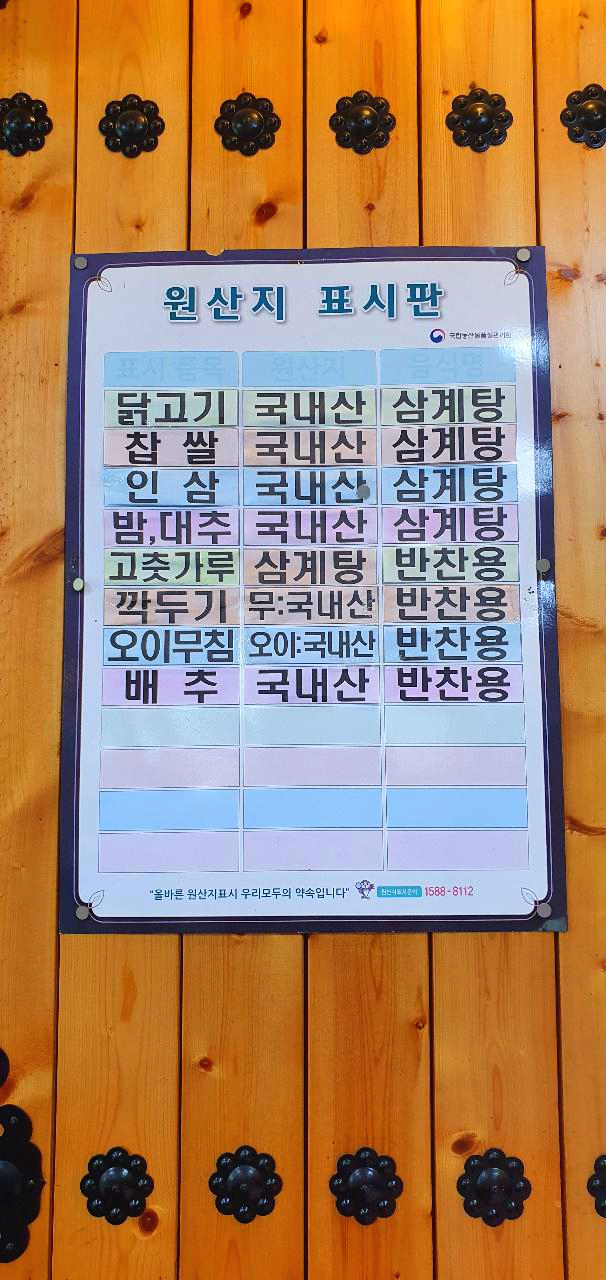 원산지 표시판
국립농산물품질관리원
표시 품목 원산지 음식명
닭고기 국내산 삼계탕
찹 쌀 국내산 삼계탕
인 삼 국내산 삼계탕
밤,대추 국내산 삼계탕
고춧가루 삼계탕 반찬용
깍두기 무:국내산 반찬용
오이무침 오이:국내산 반찬용
배 추 국내산 반찬용
"올바른 원산지표시 우리모두의 약속입니다" 원산지표시문의 1588-8112